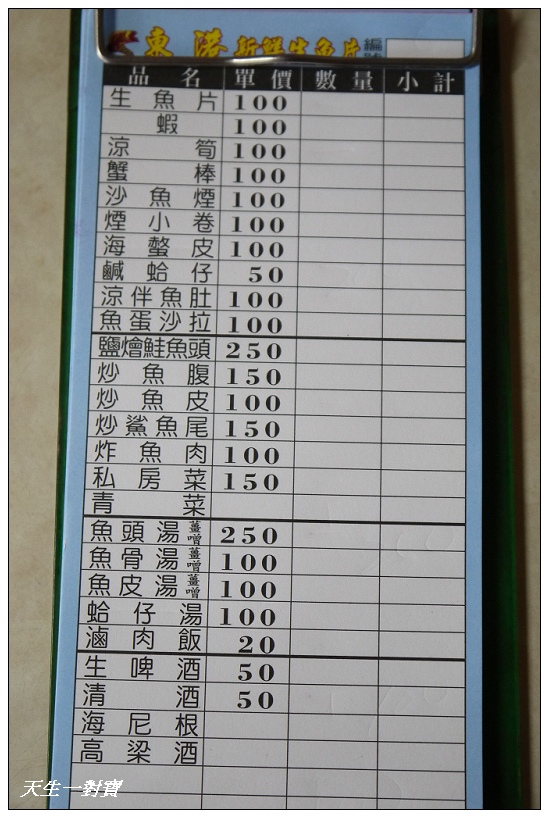 東港新鮮生魚片 編號
品名 單價 數量 小計
生魚片 100
蝦 100
涼筍 100
蟹棒 100
沙魚煙 100
煙小卷 100
海螫皮 100
鹹蛤仔 50
涼伴魚肚 100
魚蛋沙拉 100
鹽燴鮭魚頭 250
炒魚腹 150
炒魚皮 100
炒鯊魚尾 150
炸魚肉 100
私房菜 150
青菜
魚頭湯 薑噌 250
魚骨湯 薑噌 100
魚皮湯 薑噌 100
蛤仔湯 100
滷肉飯 20
生啤酒 50
清酒 50
海尼根
高梁酒
天生一對寶